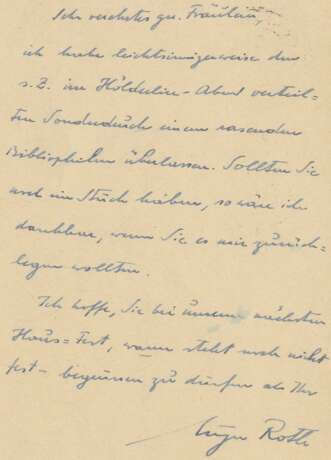 Sehr verehrtes gn. Fräulein,
ich habe leichtsinnigerweise den
s. Z. im Hölderlin-Abend verteil-
ten Sonderdruck einem rasenden
Bibliophilen überlassen. Sollten Sie
noch ein Stück haben, so wäre ich
dankbar, wenn Sie es mir zurück-
legen wollten.
Ich hoffe, Sie bei unserem nächsten
Haus-Fest, wann steht noch nicht
fest - begrüssen zu dürfen als Ihr
Eugen Roth